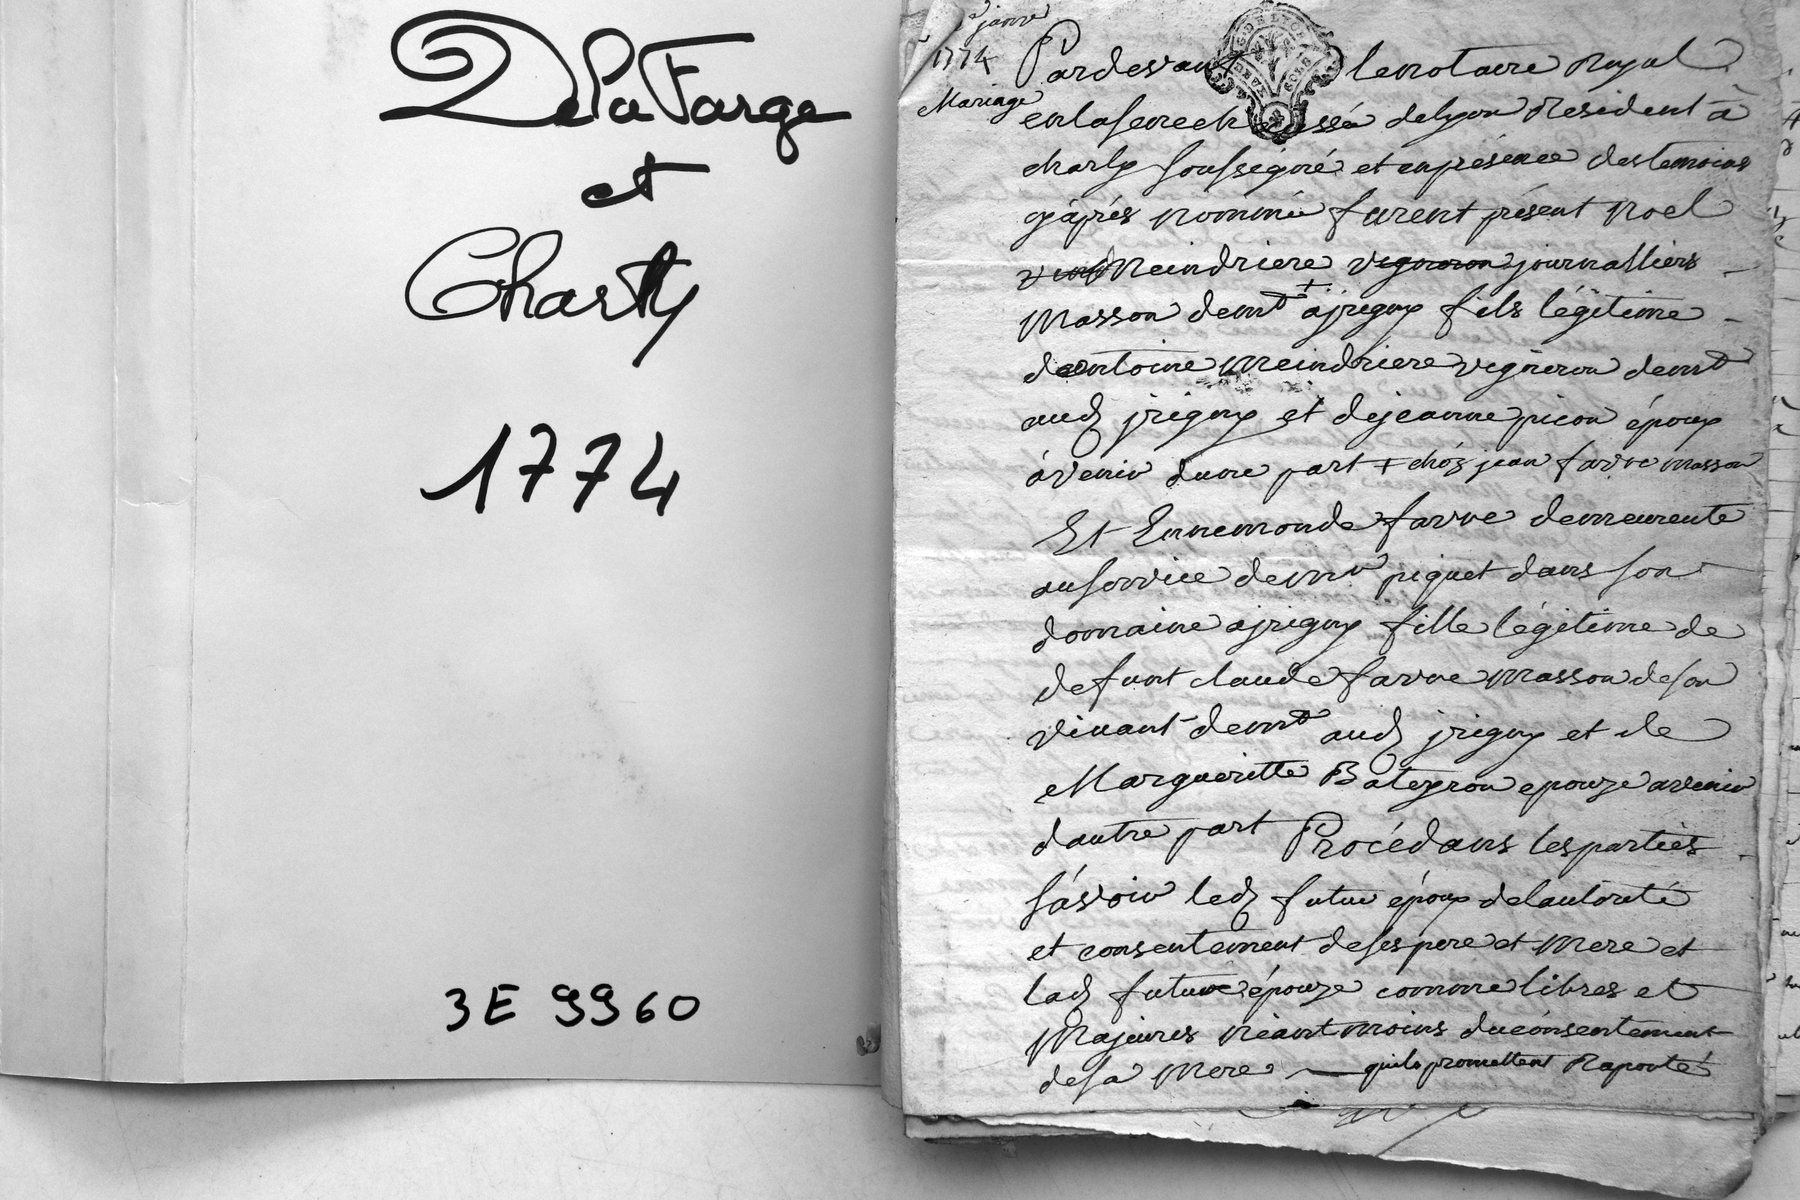 DelaFarge
et
Charly
1774
3E 9960
janv
1774
Mariage
Pardevant le notaire Royal
en la senechaussée de Lyon Resident à
charly soussigné et en présence des temoins
cy après nommé furent présent Noel
Meindriere vigneron journalliers
Masson demt + a jrigny fils légitime
dantoine Meindriere vigneron demt
aud jrigny et de jeanne picon époux
à venir dune part + chés jean favre masson
Et Ennemonde favre demeurente
au service de mr piquet dans son
domaine a jrigny fille légitime de
defunt claude favre masson de son
vivant demt aud jrigny et de
Margueritte Bateyron epouze avenir
dautre part Procédans les parties
sávoir led futur époux de lautorité
et consentement de ses pere et mere et
lad future épouze comme libres et
Majeures néantmoins du consentement
de sa Mere quils promettent Raporté